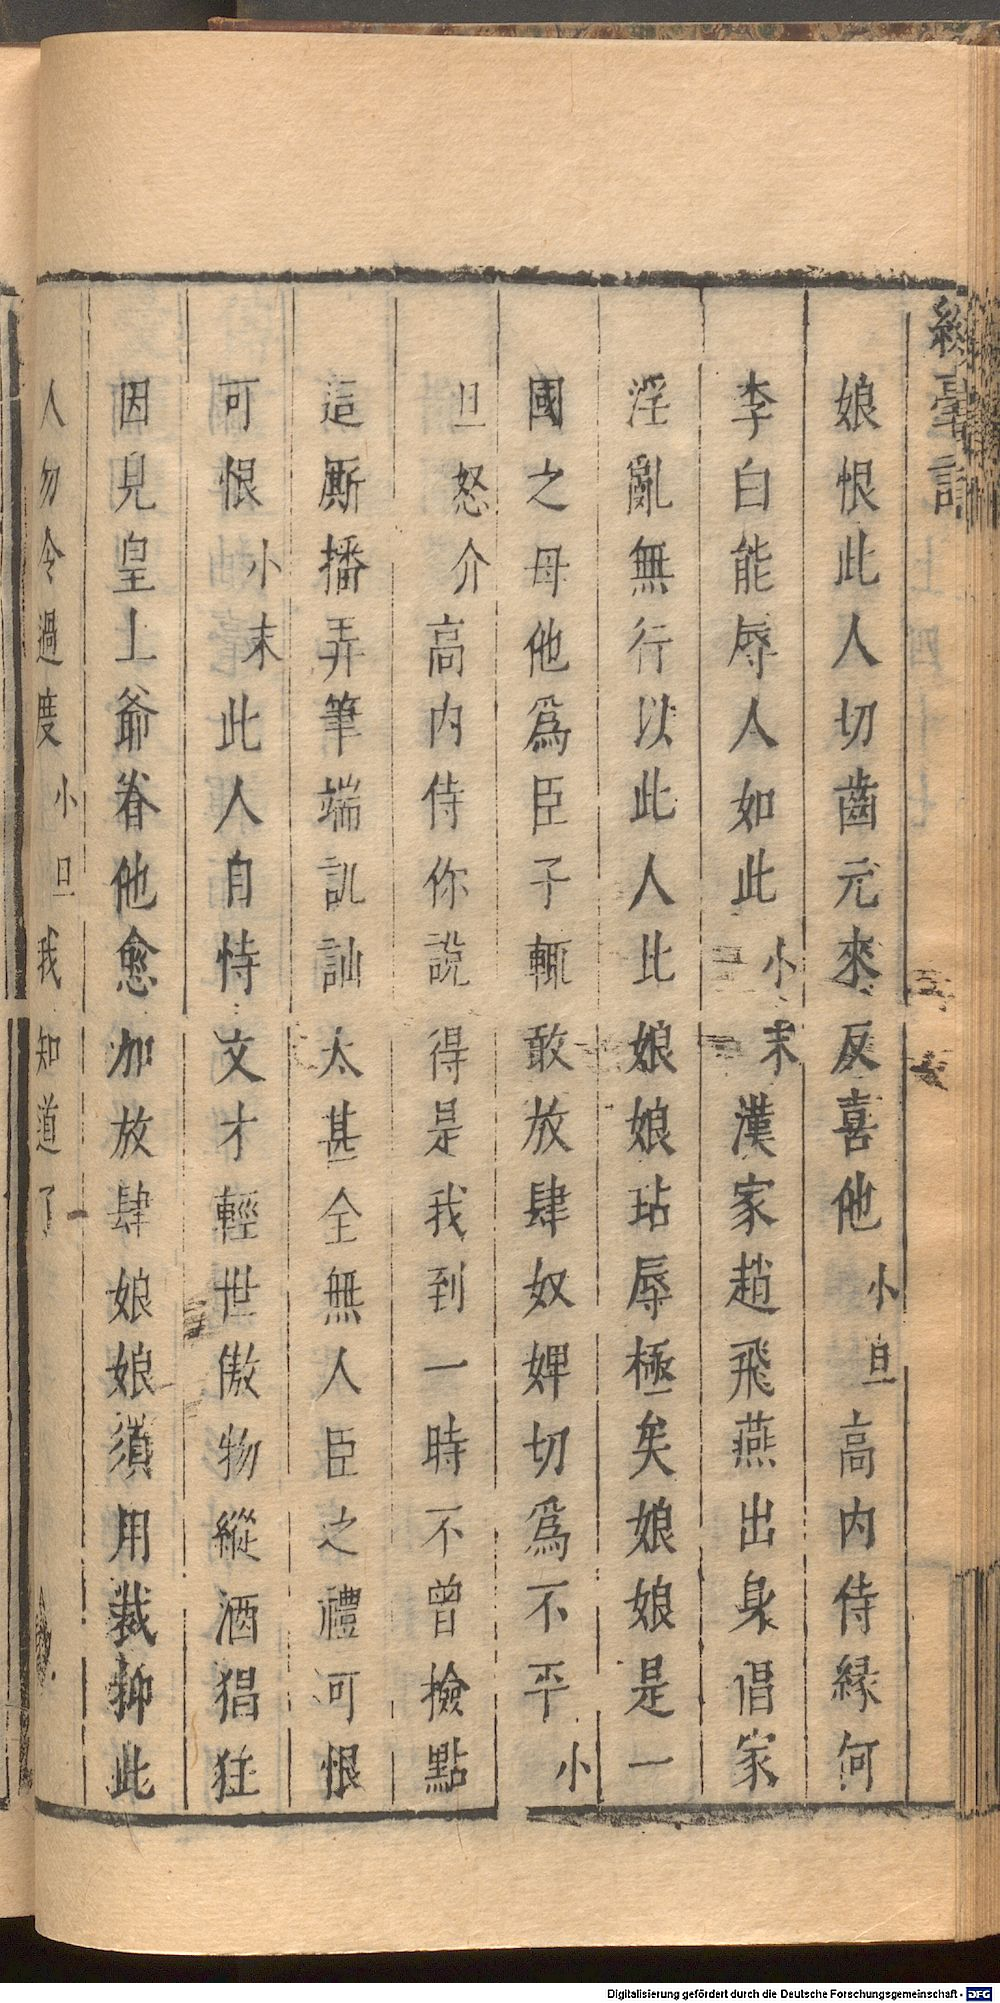 綵毫記
娘恨此人切齒元來反喜他小旦高内侍緣何
李白能辱人如此小末漢家趙飛燕出身倡家
淫亂無行以此人比娘娘玷辱極矣娘娘是一
國之母他爲臣子輒敢放肆奴婢切爲不平小
旦怒介高内侍你說得是我到一時不曾撿點
這厮播弄筆端訕訕太甚全無人臣之禮可恨
可恨小末此人自恃文才輕世傲物縱酒猖狂
因見皇上爺眷他愈加放肆娘娘須用裁抑此
人勿令過度小旦我知道了
Digitalisierung gefördert durch die Deutsche Forschungsgemeinschaft - DFG